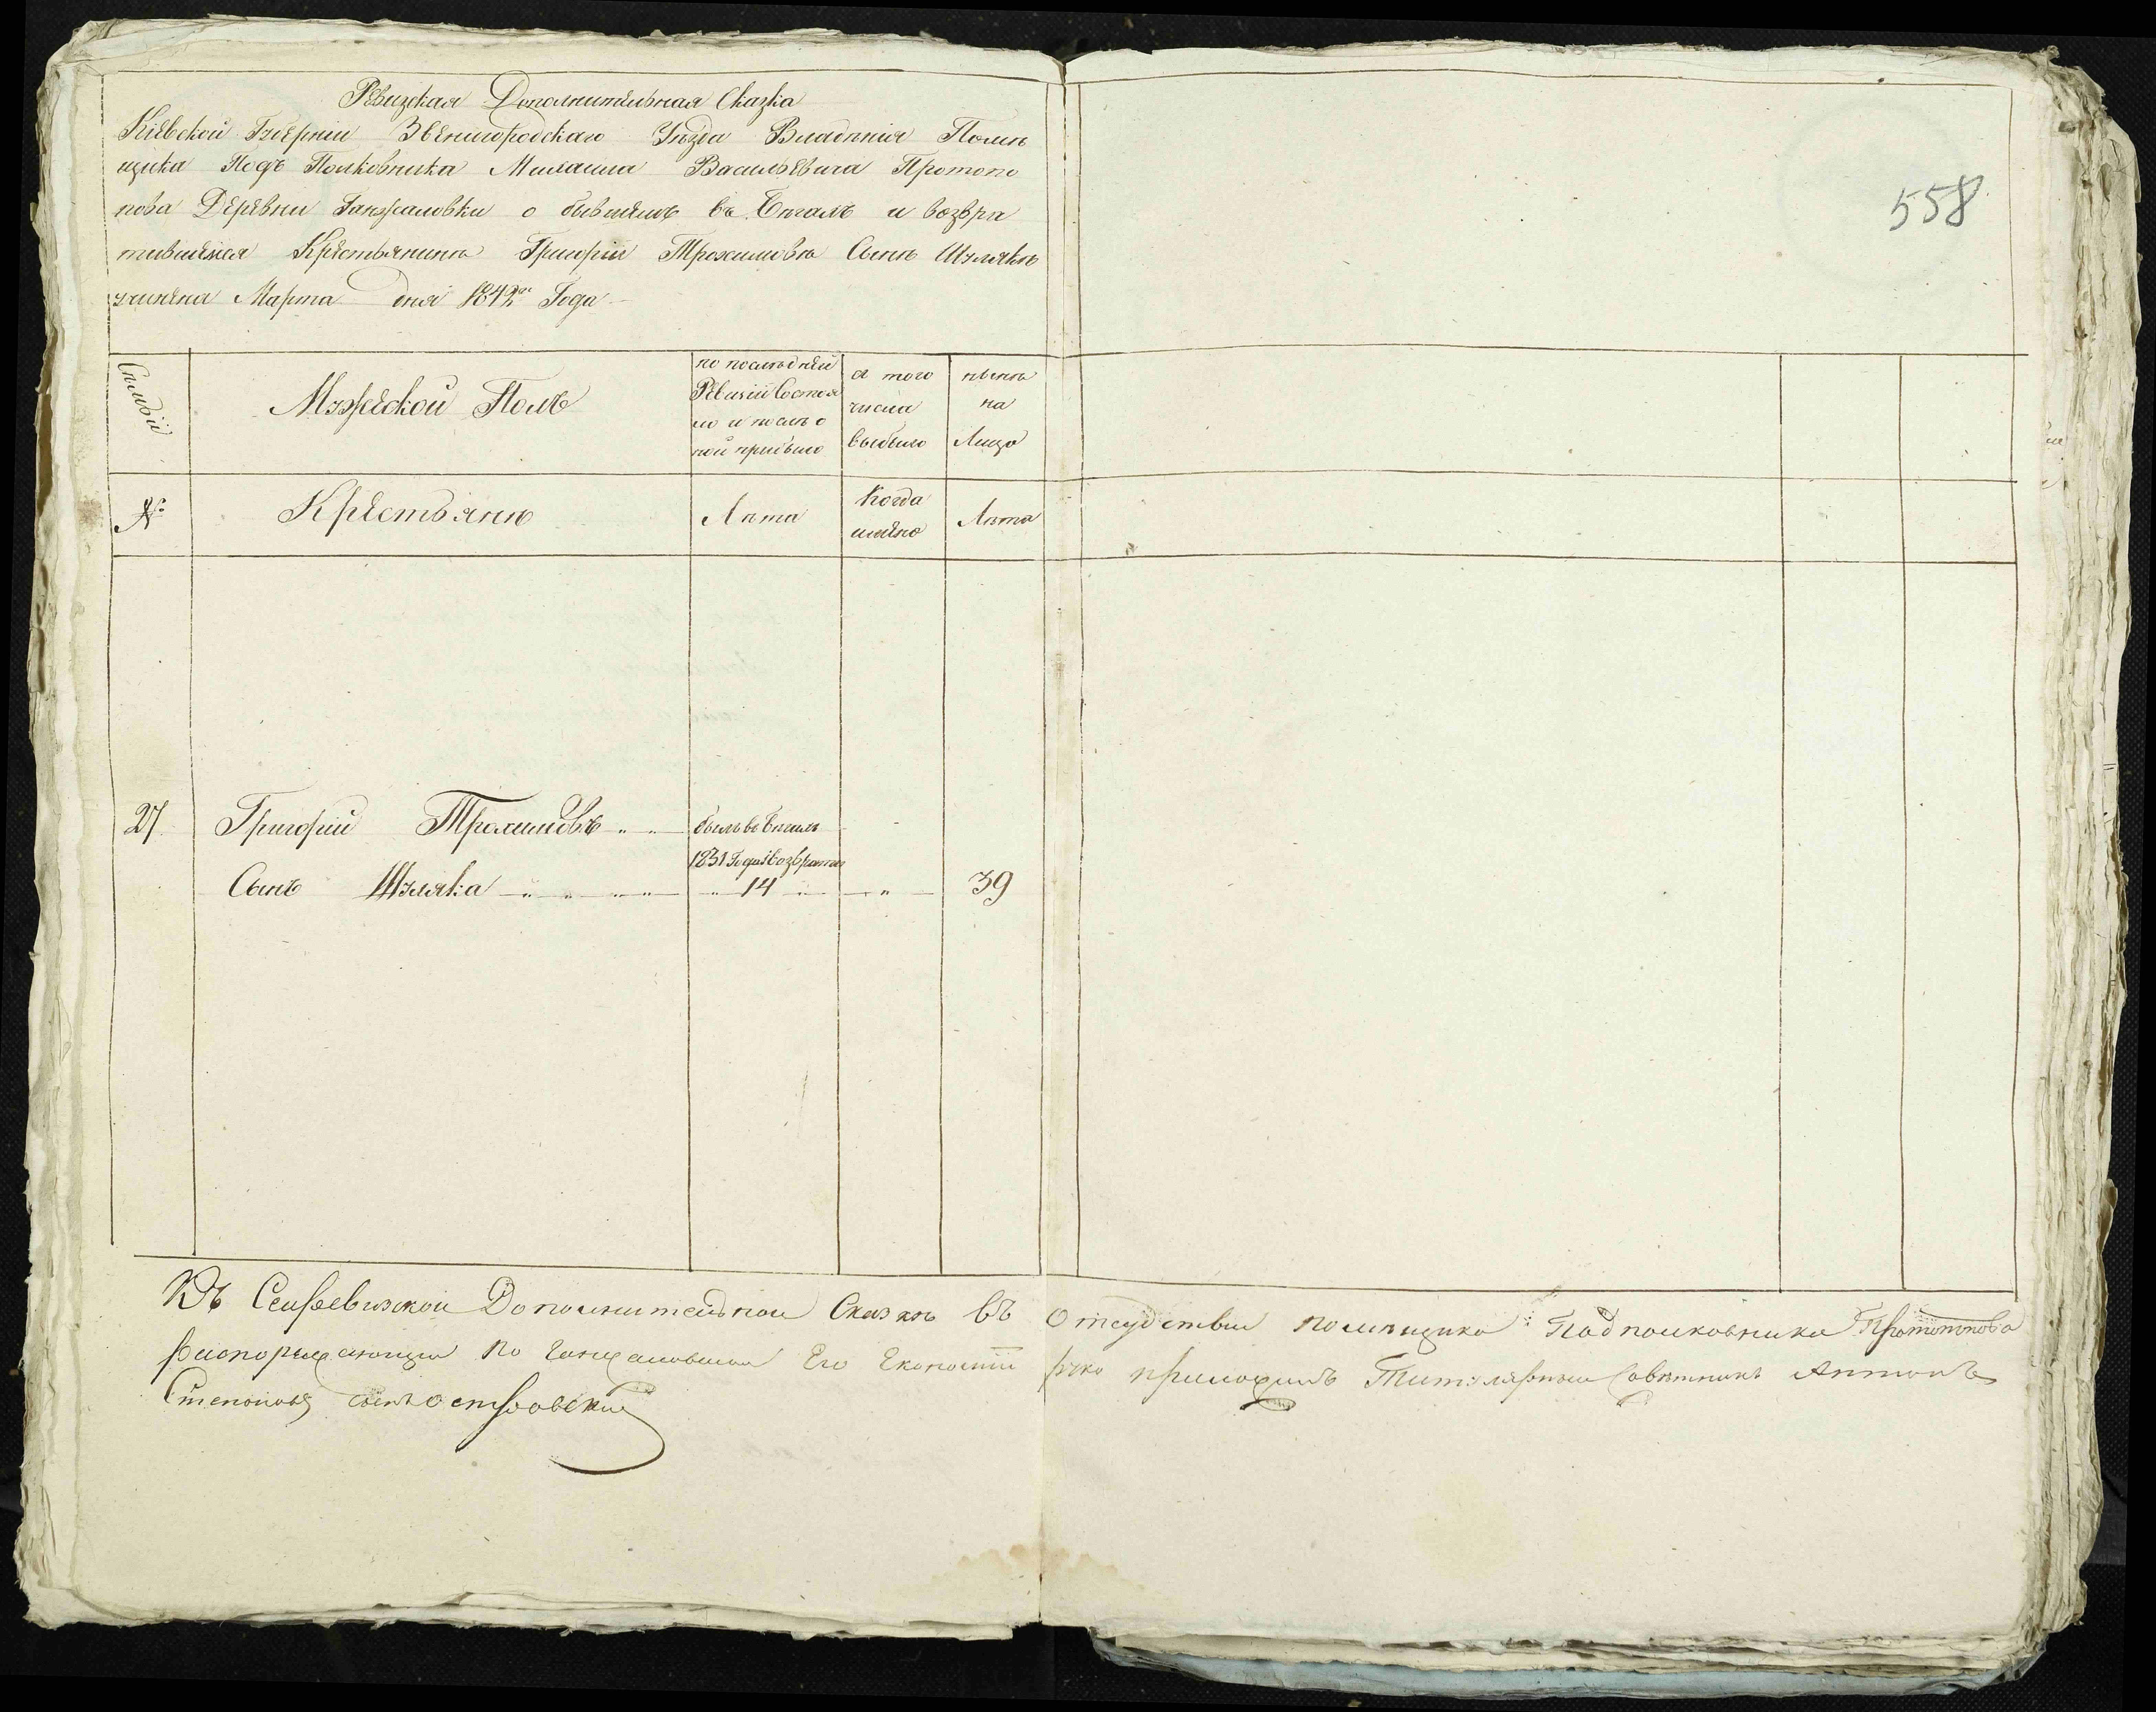 Ревизская Дополнительная Сказка
Кіевской Губерніи Звенигородскаго Уѣзда Владѣнія Помѣ
щика Подъ Полковника Михаила Васильевича Протопо
пова Деревни Ганжаловки о бывшемъ въ бѣгахъ и возвра
тившемся Крестьянинѣ Григоріи Трохимовѣ Сынѣ Шулякѣ
учинена Марта дня 1842го Года
558
Мужеской Полъ
по послѣдней
Ревизіи Состоя
ло и послѣ о
ной прибыло
из того
числа
выбыло
нынѣ
на
Лицо
№
Крестьянѣ
Лѣта
Когда
имѣно
Лѣта
27
Григорий Трохимовъ
былъ въ бѣгахъ
1831 Года возврати
Сынъ Шуляка
14
39
Къ Сей Ревизской Дополнительной Сказкѣ въ Отсудствии помѣщика Подполковника Протопопова
распоряжающій по Ганжаловской Его Економіи руку приложилъ Титулярный Совѣтникъ Антонъ
Степановъ сынъ Островский